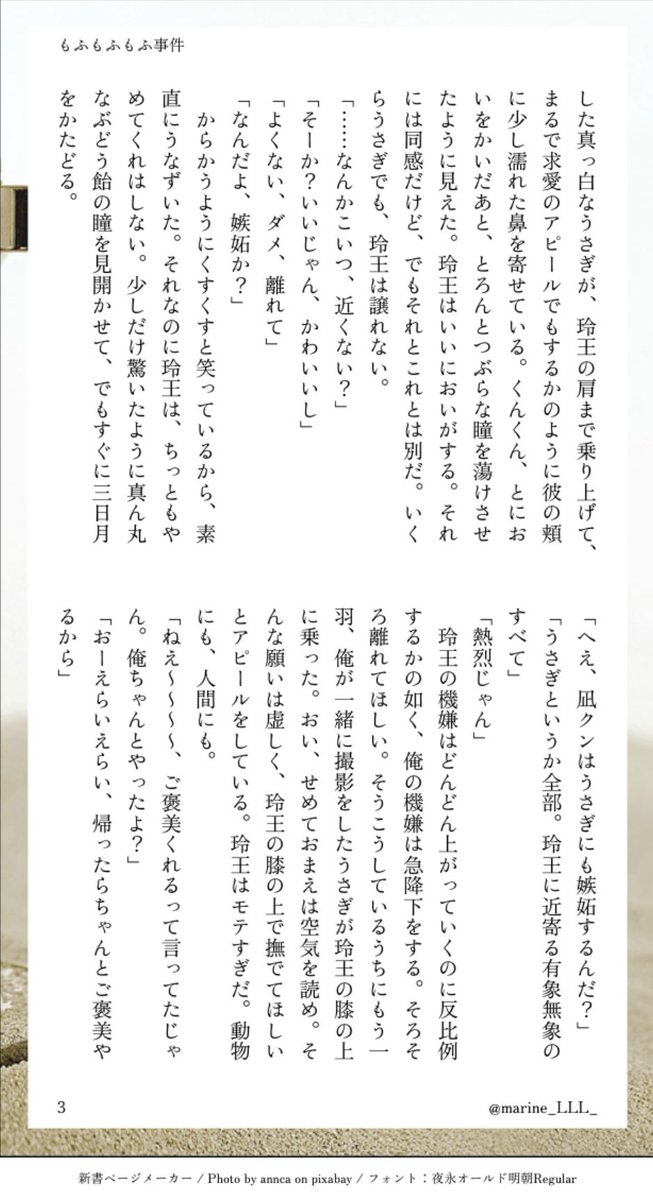 もふもふもふ事件
した真っ白なうさぎが、玲王の肩まで乗り上げて、
まるで求愛のアピールでもするかのように彼の頬
に少し濡れた鼻を寄せている。くんくん、とにお
いをかいだあと、とろんとつぶらな瞳を蕩けさせ
たように見えた。玲王はいいにおいがする。それ
には同感だけど、でもそれとこれとは別だ。いく
らうさぎでも、玲王は譲れない。
「……なんかこいつ、近くない？」
「そーか？いいじゃん、かわいいし」
「よくない、ダメ、離れて」
「なんだよ、嫉妬か？」
からかうようにくすくすと笑っているから、素
直にうなずいた。それなのに玲王は、ちっともや
めてくれはしない。少しだけ驚いたように真ん丸
なぶどう飴の瞳を見開かせて、でもすぐに三日月
をかたどる。
「へえ、凪クンはうさぎにも嫉妬するんだ？」
「うさぎというか全部。玲王に近寄る有象無象の
すべて」
「熱烈じゃん」
玲王の機嫌はどんどん上がっていくのに反比例
するかの如く、俺の機嫌は急降下をする。そろそ
ろ離れてほしい。そうこうしているうちにもう一
羽、俺が一緒に撮影をしたうさぎが玲王の膝の上
に乗った。おい、せめておまえは空気を読め。そ
んな願いは虚しく、玲王の膝の上で撫でてほしい
とアピールをしている。玲王はモテすぎだ。動物
にも、人間にも。
「ねえ〜〜〜〜、ご褒美くれるって言ってたじゃ
ん。俺ちゃんとやったよ？」
「おーえらいえらい、帰ったらちゃんとご褒美や
るから」
3
@marine_LLL_
新書ページメーカー / Photo by annca on pixabay / フォント：夜永オールド明朝Regular